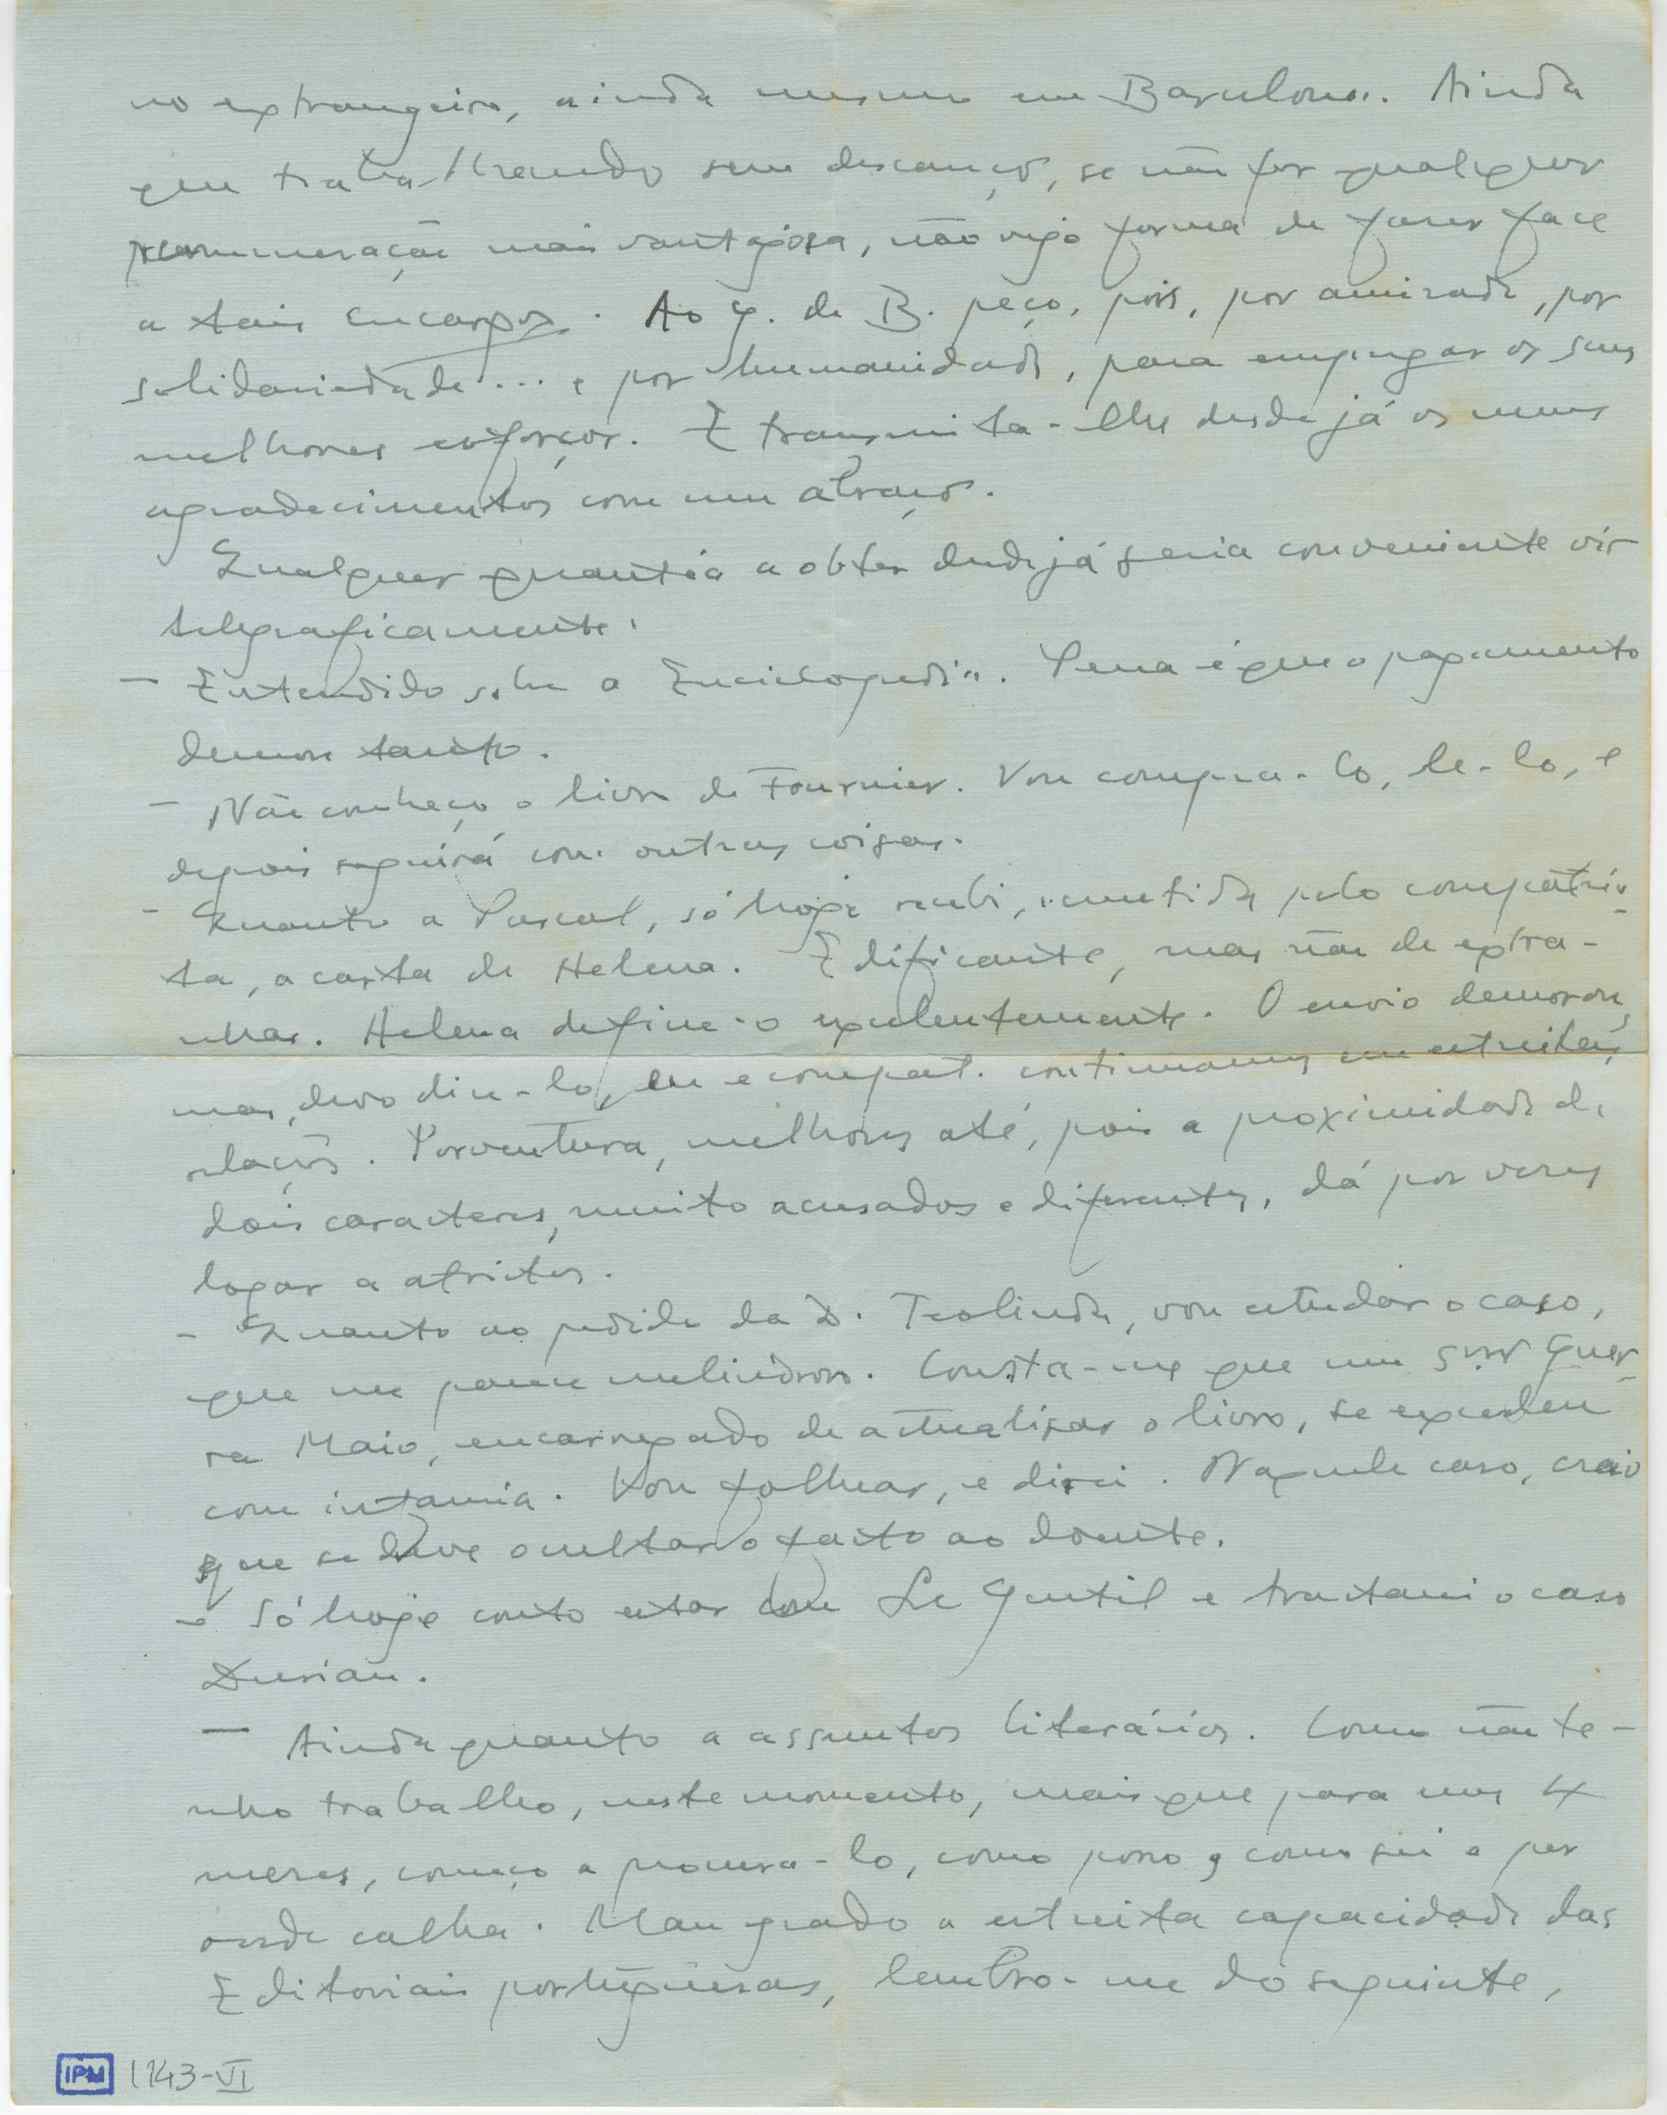 no extrangeiro, ainda mesmo em Barcelona. Ainda
que trabalhando sem descanço, se não for qualquer
remuneração mais vantajosa, não vejo forma de fazer face
a tais encargos. Ao G. de B. peço, pois, por amizade, por
solidariedade... e por humanidade, para empregar os seus
melhores esforços. E transmita-lhe desde já os meus
agradecimentos com um abraço.
Qualquer quantia a obter desde já seria conveniente vir
telegraficamente.
— Entendido sobre a Enciclopedia. Pena é que o pagamento
demore tanto.
— Não conheço o livro de Fournier. Vou compra-lo, le-lo, e
depois seguirá com outras coisas.
- Quanto a Pascal, só hoje recebi, remetida pelo compatrio-
ta, a carta de Helena. Edificante, mas não de extra-
nhar. Helena define-o excelentemente. O envio demorou,
mas, devo dize-lo, eu e compat. continuamos em estreitas
relações. Porventura, melhores até, pois a proximidade de
dois caracteres, muito acusados e diferentes, dá por vezes
logar a atrictos.
- Quanto ao pedido da D. Teolinda, vou estudar o caso,
que me parece melindroso. Consta-me que um snr Guer-
ra Maio, encarregado de actualisar o livro, se excedeu
com infamia. Vou folhear, e direi. Naquele caso, creio
que se deve ocultar o facto ao doente.
- Só hoje conto estar com Le Gentil e tratarei o caso
Durian.
— Ainda quanto a assuntos literários. Como não te-
nho trabalho, neste momento, mais que para uns 4
mezes, começo a procura-lo, como posso e como sei e por
onde calha. Mau grado a estreita capacidade das
Editoriais portuguesas, lembro-me do seguinte,
IPM 1143-VI